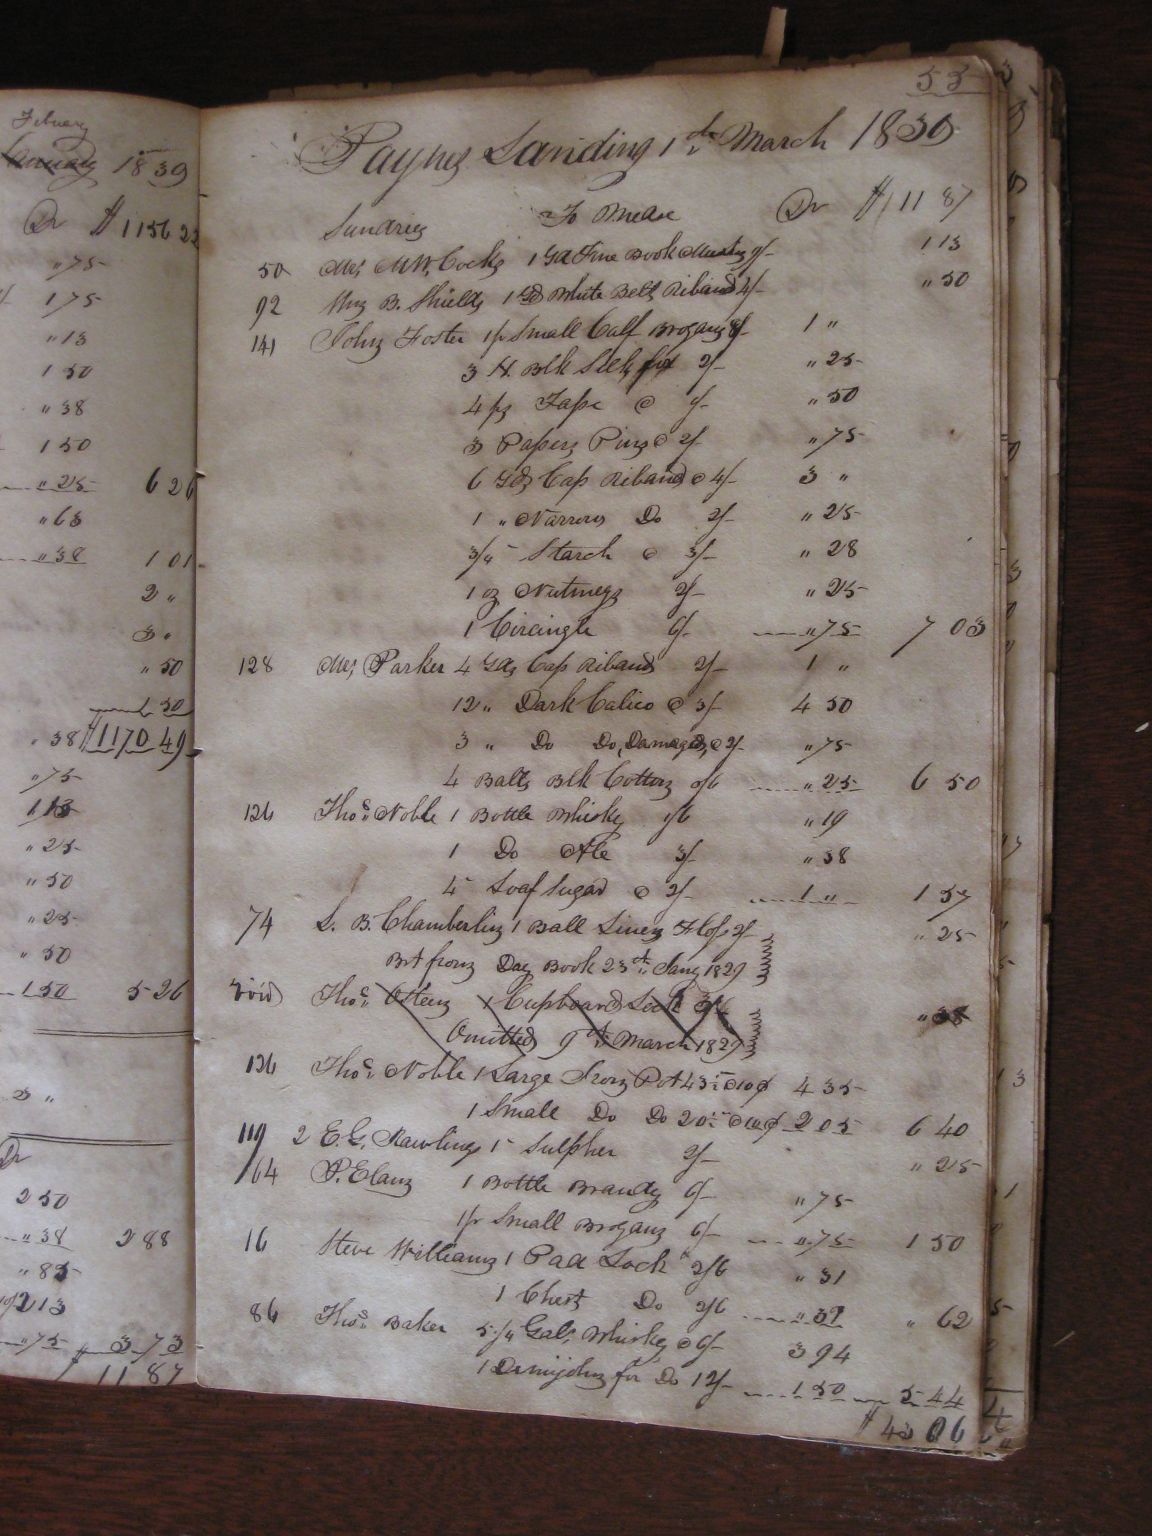 Febuary
January 1839
Dr $1156 22
"75
1 75
"13
1 50
"38
1 50
"25 6 26
"63
"38 1 01
2 "
3 "
"50
1 50
"38 $1170 49
"75
1 13
"25
"50
"25
"50
1 50 5 26
3 "
Dr
2 50
"38 2 88
"85
2 13
"75 3 73
11 87
53
Payns Landing 1st March 1839
Sundries To Mdse Dr $11 87
50 Mrs M W, Cocks 1 Yd Fine Book Muslin 9/- 1 13
92 Mrs B. Shields 1 Yd White Belt Riband 4/- "50
141 John Foster 1 pr Small Calf Brogans 8/- 1 "
3 H. Blk Silk for 2/- "25
4 ps Tape @ 1/- "50
3 Papers Pins @ 2/- "75
6 Yds Cap Riband @ 4/- 3 "
1 " Narrow Do 2/- "25
3/4 Starch @ 3/- "28
1 oz Nutmegs 2/- "25
1 Circingle 6/- "75 7 03
128 Mrs Parker 4 Yds Cap Riband 2/- 1 "
12 " Dark Calico @ 3/- 4 50
3 " Do Do, Damaged, @ 2/- "75
4 Balls Blk Cotton /6 "25 6 50
126 Thos. Noble 1 Bottle Whisky 1/6 "19
1 Do Ale 3/- "38
4 Loaf Sugar @ 2/- 1 " 1 57
74 L. B. Chamberlin 1 Ball Linen Floss 2/- "25
Brt from Day Book 23rd Jany 1829
Void Thos. Osteen 1 Cupboard Lock 3/6 "38
Omitted 9th March 1829
126 Thos. Noble 1 Large Iron Pot 43 @ 10¢ 4 35
1 Small Do Do 20 @ 10¢ 2 05 6 40
119 2 E. G. Rawlings 1 Sulpher 2/- "25
164 P. Elam 1 Bottle Brandy 6/- "75
1 pr Small Brogans 6/- "75 1 50
16 Steve Williams 1 Pad Lock 2/6 "31
1 Chest Do 2/6 "31 "62
86 Thos. Baker 5 1/4 Gals Whisky @ 6/- 3 94
1 Demijohn for Do 12/- 1 50 5 44
$43 06